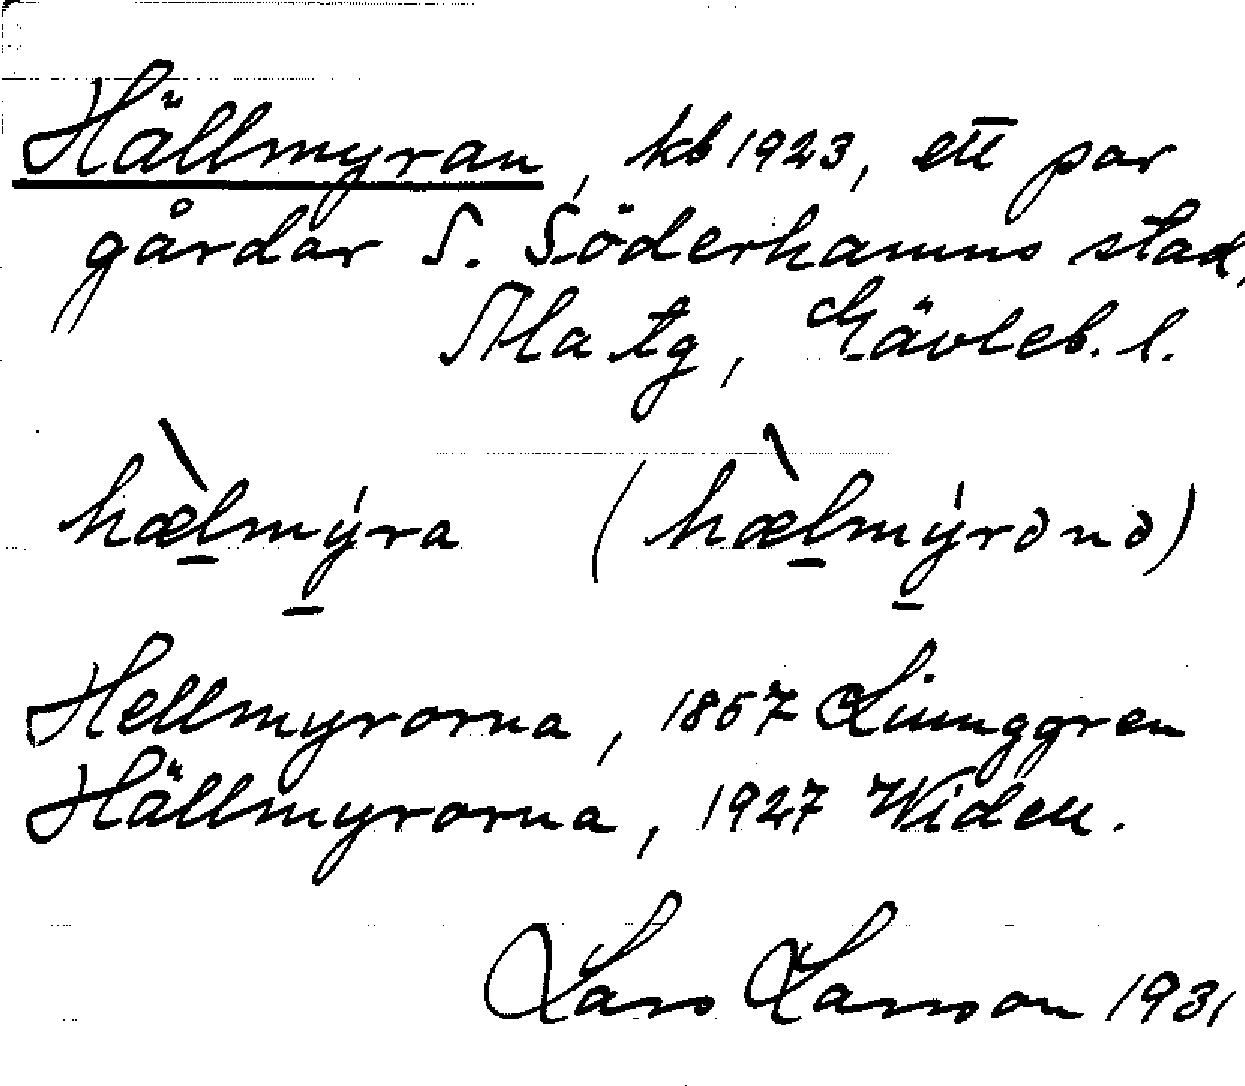 Hällmyran, kb 1923, ett par
gårdar S. Söderhamns stad,
Ala tg, Gävleb. l.
hæ̀lmýra (hæ̀lmýrənə)
Hellmyrorna, 1867 Liunggren
Hällmyrorna, 1927 Widell.
Lars Larsson 1931